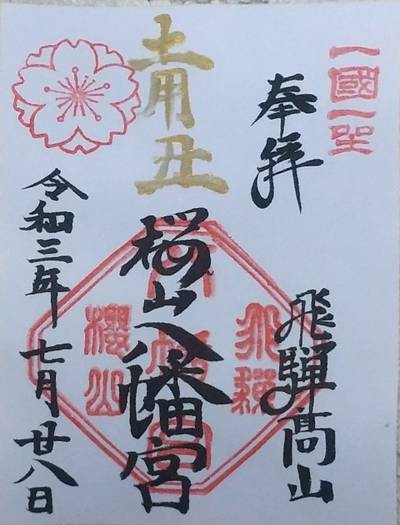 一國一社
奉拝
飛騨高山
土用丑
桜山八幡宮
飛騨
櫻山
令和三年七月廿八日